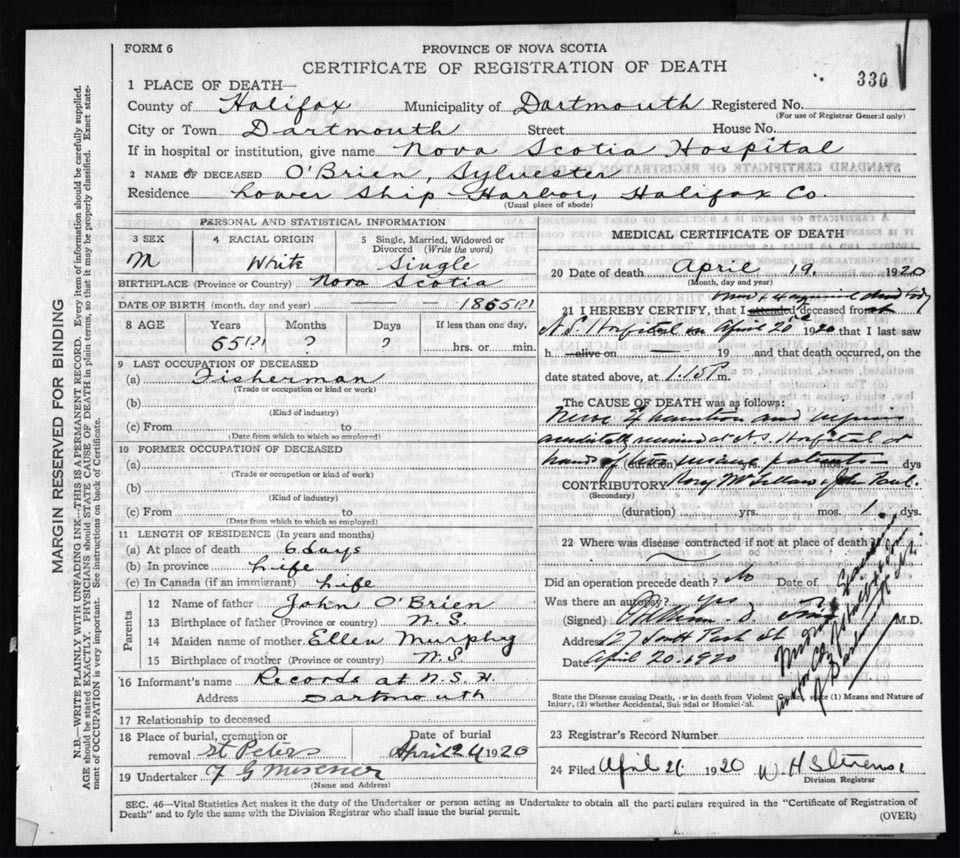 FORM 6
PROVINCE OF NOVA SCOTIA
CERTIFICATE OF REGISTRATION OF DEATH
330
1 PLACE OF DEATH—
County of Halifax Municipality of Dartmouth Registered No.
(For use of Registrar General only)
City or Town Dartmouth Street House No.
If in hospital or institution, give name Nova Scotia Hospital
2 NAME OF DECEASED O'Brien, Sylvester
Residence Lower Ship Harbor, Halifax Co
(Usual place of abode)
PERSONAL AND STATISTICAL INFORMATION
3 SEX 4 RACIAL ORIGIN 5 Single, Married, Widowed or Divorced (Write the word)
M White Single
BIRTHPLACE (Province or Country) Nova Scotia
DATE OF BIRTH (month, day and year) — — 1865(?)
8 AGE Years Months Days If less than one day,
65(?) ? ? hrs. or min.
9 LAST OCCUPATION OF DECEASED
(a) Fisherman
(Trade or occupation or kind of work)
(b)
(Kind of industry)
(c) From to
(Date from which to which so employed)
10 FORMER OCCUPATION OF DECEASED
(a)
(Trade or occupation or kind of work)
(b)
(Kind of industry)
(c) From to
(Date from which to which so employed)
11 LENGTH OF RESIDENCE (In years and months)
(a) At place of death 6 days
(b) In province Life
(c) In Canada (if an immigrant) Life
Parents
12 Name of father John O'Brien
13 Birthplace of father (Province or country) N.S.
14 Maiden name of mother Ellen Murphy
15 Birthplace of mother (Province or country) N.S.
16 Informant's name Records at N.S.H.
Address Dartmouth
17 Relationship to deceased
18 Place of burial, cremation or removal St Peters Date of burial April 24 1920
19 Undertaker F G Misener
(Name and Address)
MEDICAL CERTIFICATE OF DEATH
20 Date of death April 19. 1920
(Month, day and year)
21 I HEREBY CERTIFY, that I attended deceased from
dead body
N.S. Hospital on April 20 1920 that I last saw
h alive on — 19 and that death occurred, on the
date stated above, at 1.15 P m.
The CAUSE OF DEATH was as follows:
and
received at N.S. Hospital at
hands of two insane patients
(duration) yrs. mos. dys
CONTRIBUTORY John Paul.
(Secondary)
(duration) yrs. mos. 1.
22 Where was disease contracted if not at place of death?
Did an operation precede death? No Date of
Was there an autopsy? Yes
(Signed) M.D.
Address 127 South Park St
Date April 20.1920
State the Disease causing Death, or in death from Violent Causes, state (1) Means and Nature of
Injury, (2) whether Accidental, Suicidal or Homicidal.
23 Registrar's Record Number
24 Filed April 21 1920 W H Stevens
Division Registrar
SEC. 46—Vital Statistics Act makes it the duty of the Undertaker or person acting as Undertaker to obtain all the particulars required in the "Certificate of Registration of
Death" and to fyle the same with the Division Registrar who shall issue the burial permit.
(OVER)
MARGIN RESERVED FOR BINDING
N.B.—WRITE PLAINLY WITH UNFADING INK—THIS IS A PERMANENT RECORD. Every item of information should be carefully supplied.
AGE should be stated EXACTLY. PHYSICIANS should STATE CAUSE OF DEATH in plain terms, so that it may be properly classified. Exact state-
ment of OCCUPATION is very important. See instructions on back of Certificate.